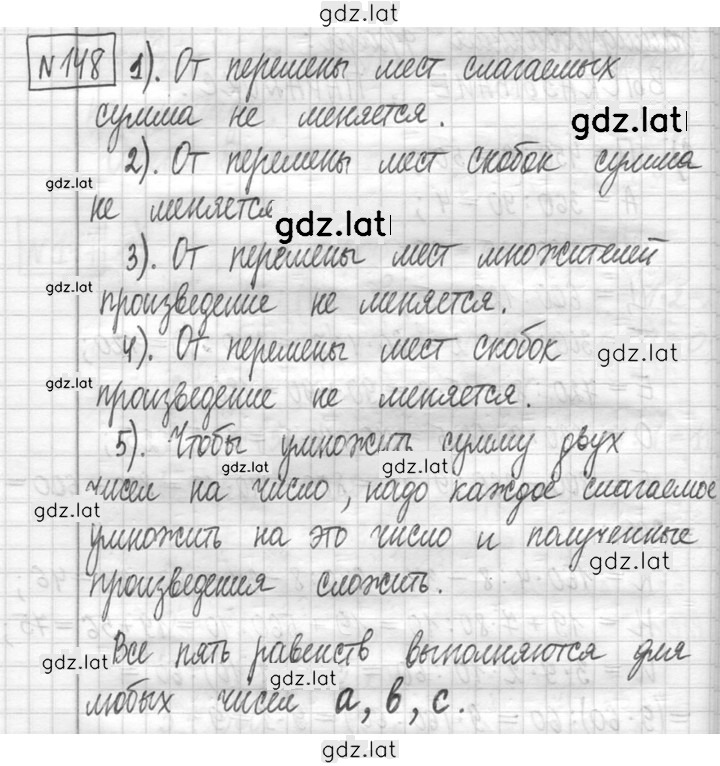 gdz.lat
N 148 1). От перемены мест слагаемых
сумма не меняется.
gdz.lat
2). От перемены мест скобок сумма
gdz.lat
не меняется
gdz.lat
3). От перемены мест множителей
gdz.lat
произведение не меняется.
4). От перемены мест скобок
gdz.lat
gdz.lat
произведение не меняется.
5). Чтобы умножить сумму двух
gdz.lat gdz.lat
чисел на число, надо каждое слагаемое
gdz.lat
умножить на это число и полученные
gdz.lat
произведения сложить.
Все пять равенств выполняются для
gdz.lat
gdz.lat
любых чисел a, b, c.
gdz.lat